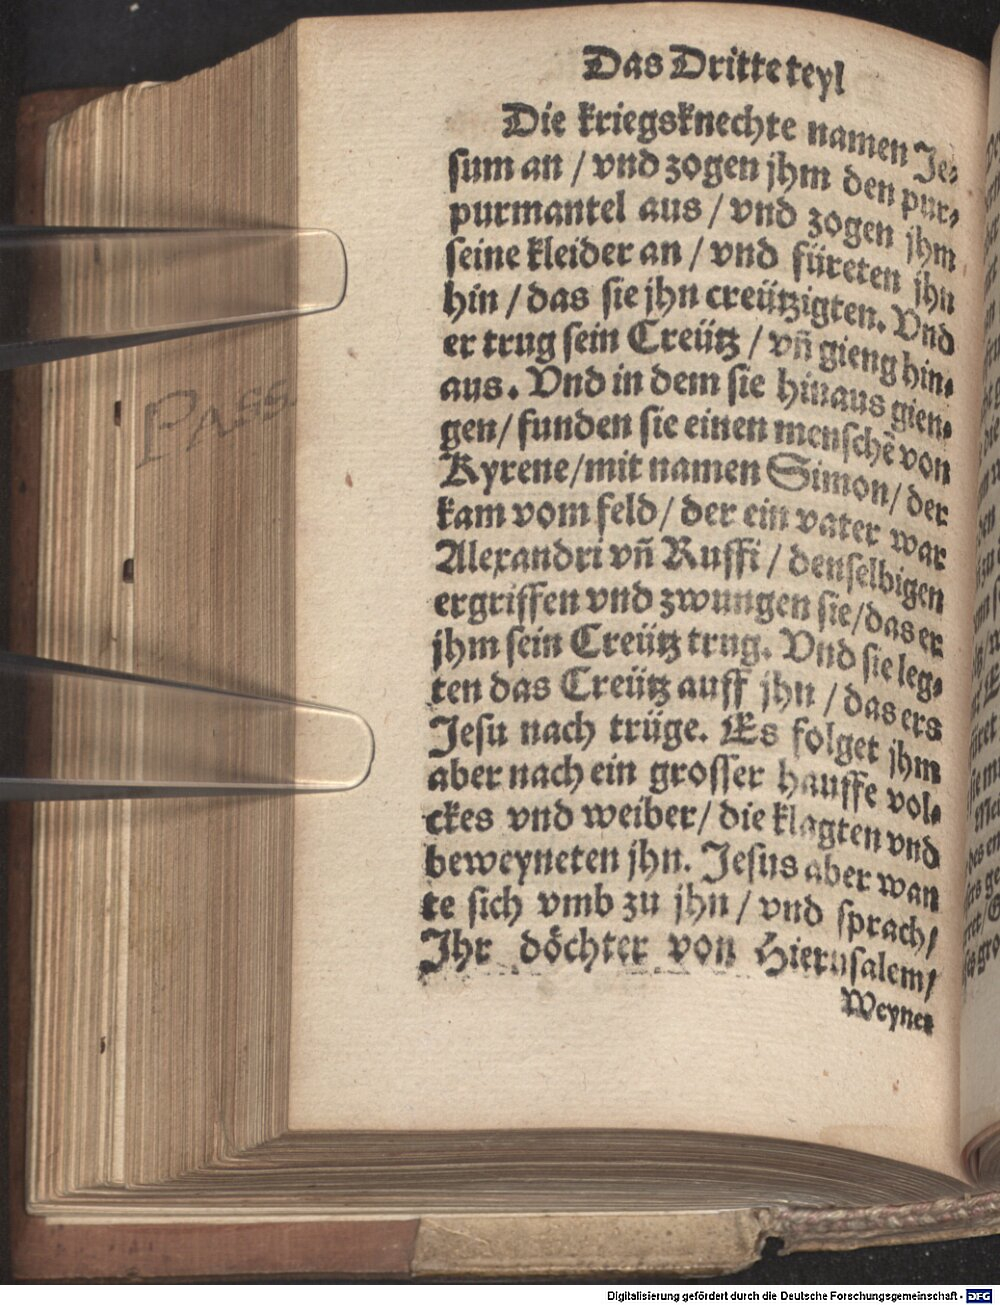 Das Dritte teyl
Die kriegsknechte namen Je⸗
sum an / vnd zogen jhm den pur⸗
purmantel aus / vnd zogen jhm
seine kleider an / vnd füreten jhn
hin / das sie jhn creützigten. Vnd
er trug sein Creütz / vñ gieng hin⸗
aus. Vnd in dem sie hinaus gien⸗
gen / funden sie einen menschē von
Kyrene / mit namen Simon / der
kam vom feld / der ein vater war
Alexandri vñ Ruffi / denselbigen
ergriffen vnd zwungen sie / das er
jhm sein Creütz trug. Vnd sie leg⸗
ten das Creütz auff jhn / das ers
Jesu nach trüge. Es folget jhm
aber nach ein grosser hauffe vol⸗
ckes vnd weiber / die klagten vnd
beweyneten jhn. Jesus aber wan
te sich vmb zu jhn / vnd sprach /
Ihr döchter von Hierusalem /
Weynet
PASS.
Digitalisierung gefördert durch die Deutsche Forschungsgemeinschaft - DFG